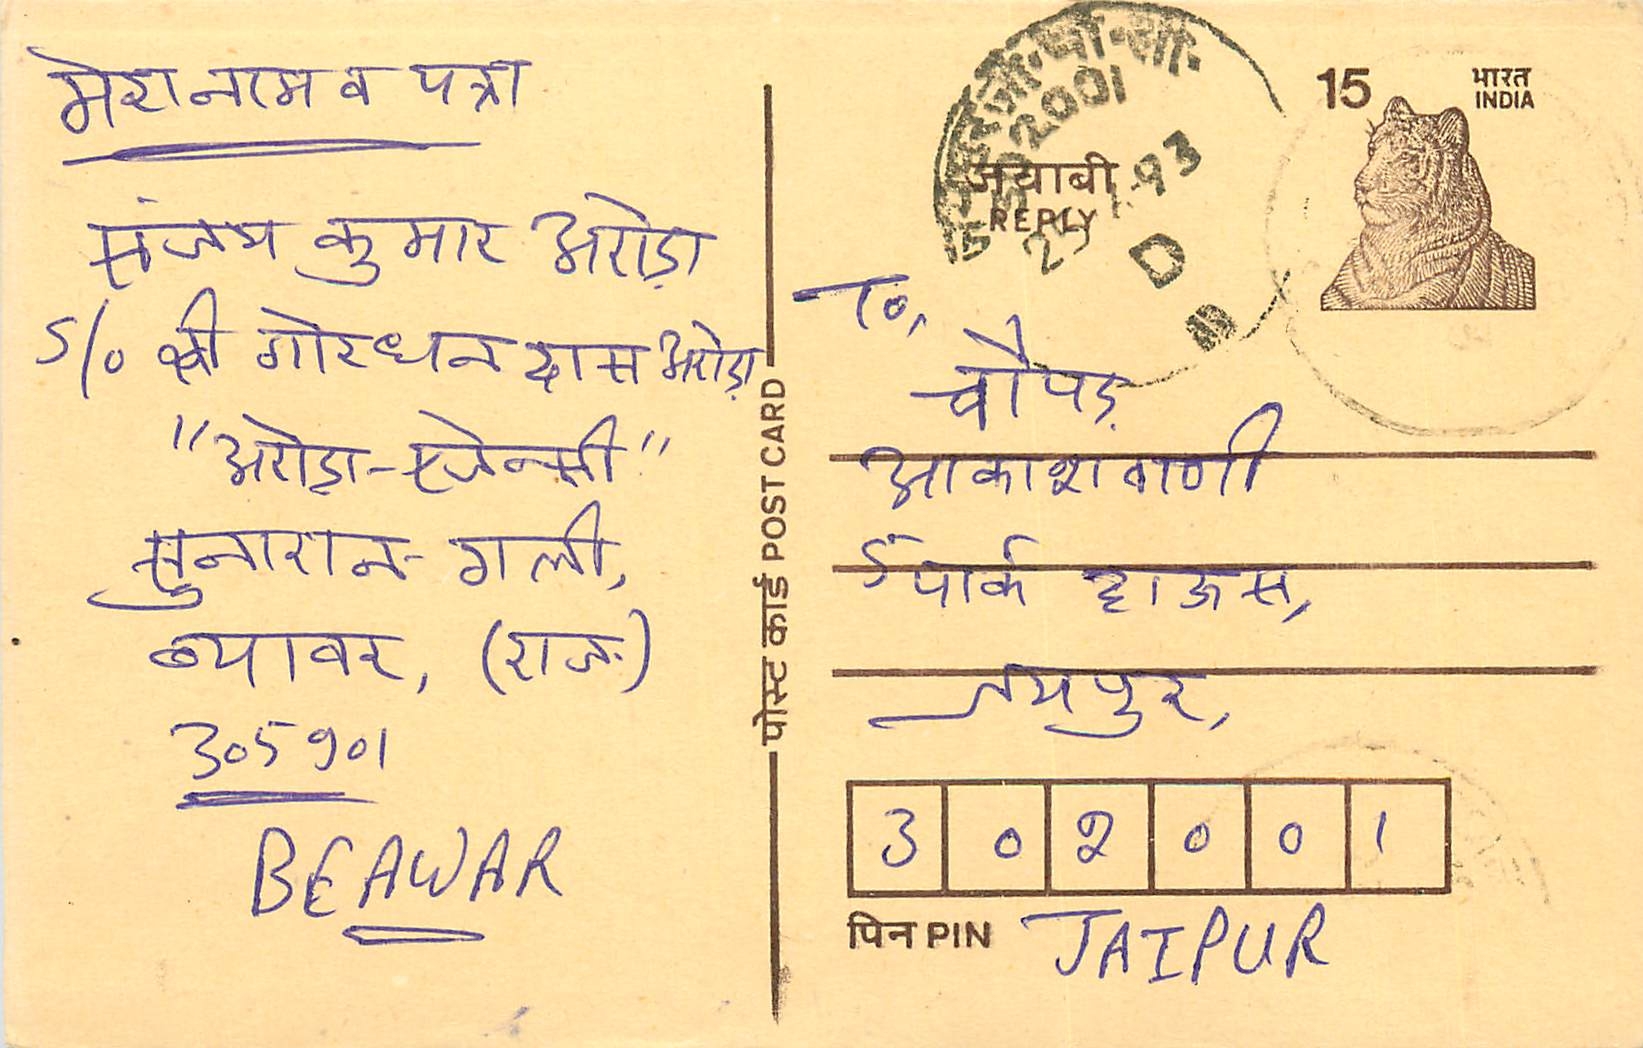 मेरा नाम व पत्रा
संजय कुमार अरोड़ा
S/o श्री गोरधन दास अरोड़ा
"अरोड़ा-एजेन्सी"
सुनारान-गली,
ब्यावर, (राज.)
305901
BEAWAR
पोस्ट कार्ड POST CARD
जी.पी.ओ.
302001
1.93
D
जवाबी
REPLY
15
भारत
INDIA
To,
चौपड़
आकाशवाणी
पार्क हाऊस,
जयपुर,
302001
पिन PIN
JAIPUR